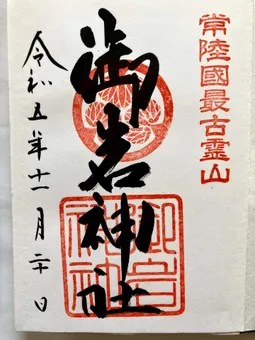 常陸國最古霊山
御岩神社
令和五年十一月二十日
御岩神社